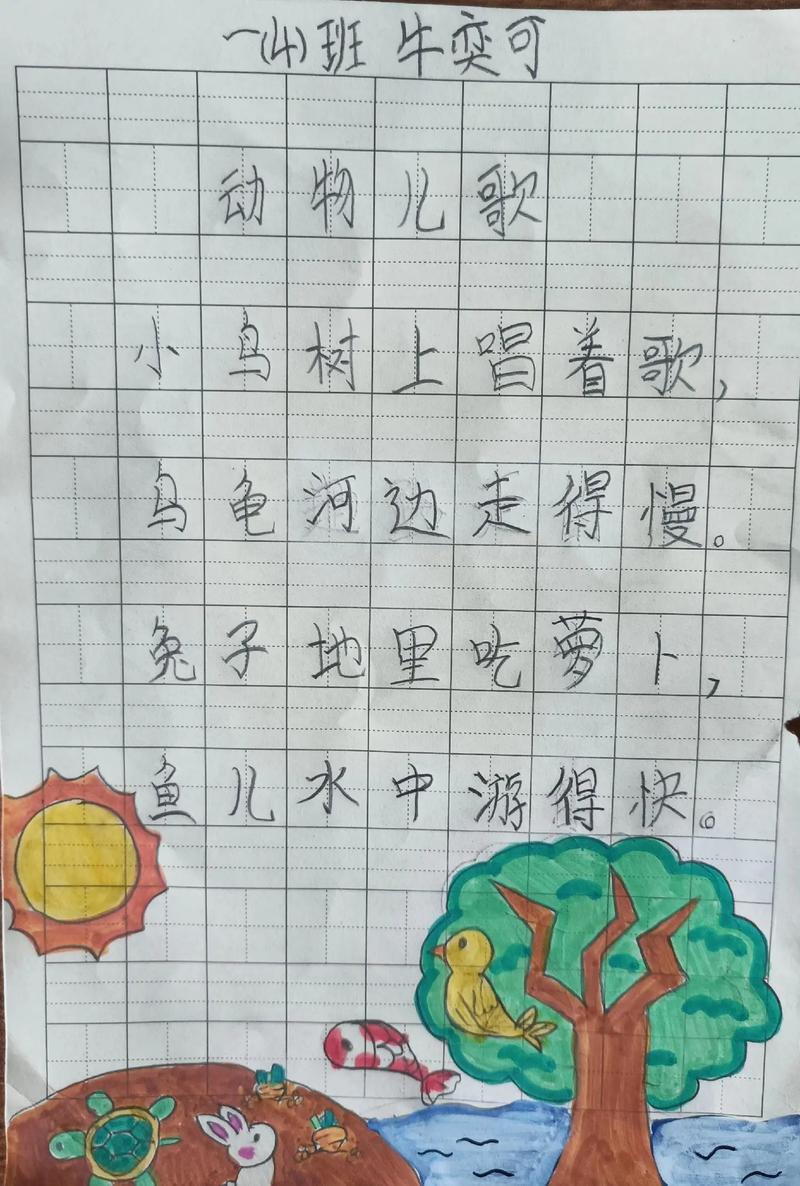 一(4)班 牛奕可
动物儿歌
小鸟树上唱着歌，
乌龟河边走得慢。
兔子地里吃萝卜，
鱼儿水中游得快。